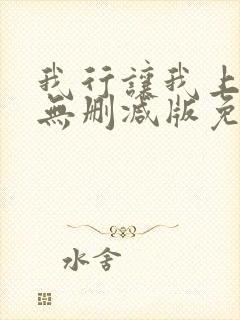 我行讓我上
無刪减版免
水舍